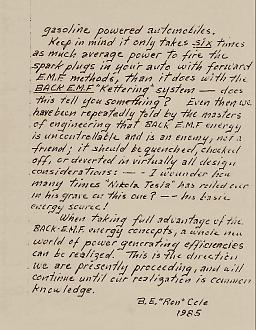 gasoline powered automobiles.
Keep in mind it only takes six times
as much average power to fire the
spark plugs in your auto with forward
E.M.F. methods, than it does with the
BACK E.M.F "Kettering" system — does
this tell you something? Even then we
have been repeatedly told by the masters
of engineering that BACK EMF energy
is uncontrollable and is an enemy, not a
friend; it should be quenched, chocked
off, or diverted in virtually all design
considerations: — - I wounder how
many times "Nikola Tesla" has rolled over
in his grave on this one? - - his basic
energy source!
When taking full advantage of the
BACK-E.M.F. energy concepts, a whole new
world of power generating efficiencies
can be realized. This is the direction
we are presently proceeding, and will
continue until our realization is common
knowledge.
B.E. "Ron" Cole
1985